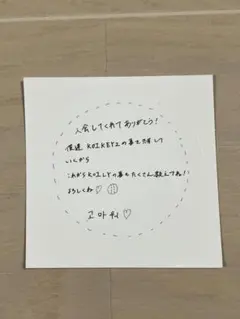 入会してくれてありがとう!
僕達 KOIKEYZの事も大事して
いくから
これからKOILYの事もたくさん教えてね!
よろしくね♡
고마워♡